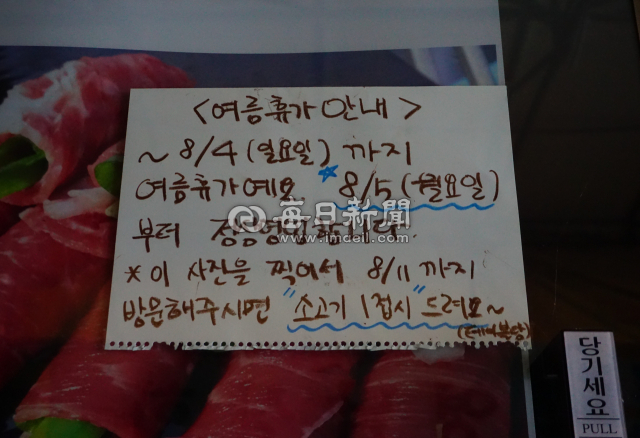 <여름휴가 안내>
~ 8/4 (일요일) 까지
여름휴가예요 *8/5 (월요일)
每日新聞
www.imaeil.com
부터 정상영업합니다.
*이 사진을 찍어서 8/11 까지
방문해주시면 "소고기 1접시" 드려요~
당기세요
PULL